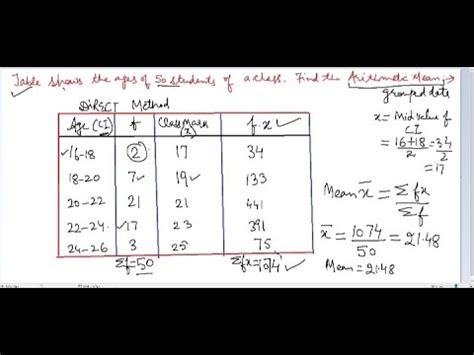 Table shows the ages of 50 students of a class. Find the Arithmetic Mean →
grouped data
DIRECT Method
Age (CI) f Class Mark (x) f.x
16-18 2 17 34
18-20 7 19 133
20-22 21 21 441
22-24 17 23 391
24-26 3 25 75
Σf=50 Σfx=1074
x = Mid value of
CI
= 16+18/2 = 34/2
= 17
Mean x̄ = Σfx/Σf
x̄ = 1074/50 = 21.48
Mean = 21.48